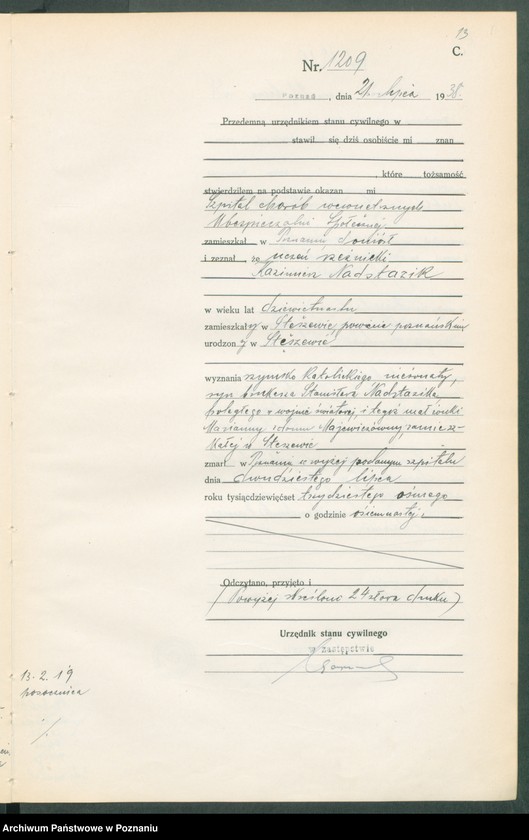 13
C.
Nr. 1209
Poznań, dnia 21. lipca 1938
Przedemną urzędnikiem stanu cywilnego w
stawił się dziś osobiście mi znan
, które tożsamość
stwierdziłem na podstawie okazan mi
Szpital chorób wewnętrznych
Ubezpieczalni Społecznej
zamieszkał w Poznaniu doniósł
i zeznał, że uczeń rzeźnicki
Kazimierz Nadstazik
w wieku lat dziewiętnastu
zamieszkały w Stęszewie, powiecie poznańskim
urodzony w Stęszewie
wyznania rzymsko katolickiego, nieżonaty,
syn Stanisława Nadstazika
poległego w wojnie światowej, i tegoż małżonki
Marianny z domu Majewiczówny, zamiesz-
kałej w Stęszewie
zmarł w Poznaniu w wyżej podanym szpitalu
dnia dwudziestego lipca
roku tysiącdziewięćset trzydziestego ósmego
o godzinie osiemnastej.
Odczytano, przyjęto i
(Powyżej skreślono 24 słowa druku)
Urzędnik stanu cywilnego
w zastępstwie
13. 2. 19
Archiwum Państwowe w Poznaniu